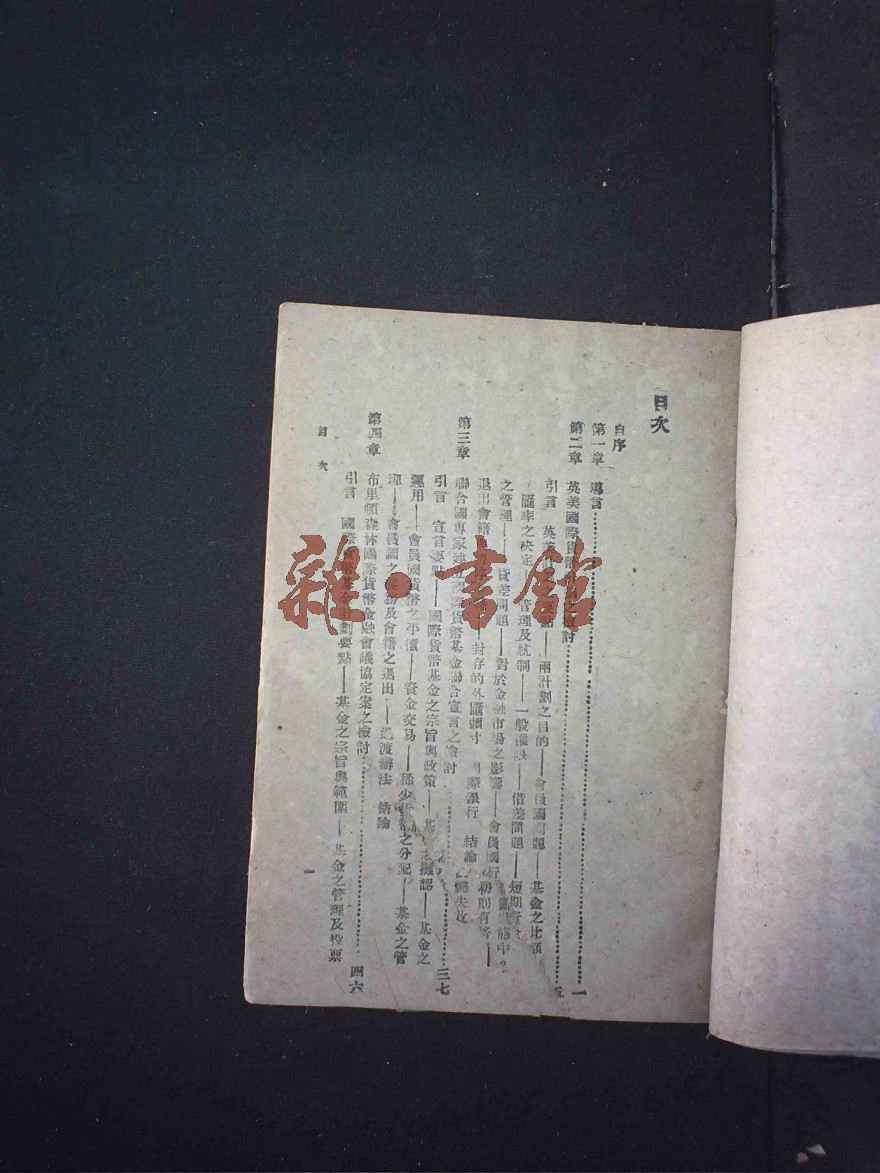 目次
自序
第一章 導言 一
第二章 英美國際貨幣 檢討 五
引言 英美 兩計劃之目的——會員國問題——基金之比額
匯率之決定 管理及統制——一般權限——借差問題——短期
之管理 貸差問題——對於金融市場之影響——會員國行
退出會籍 封存的外匯頭寸 國際銀行 結論
第三章 聯合國專家建立國際貨幣基金聯合宣言之檢討 三七
引言 宣言要點——國際貨幣基金之宗旨與政策——基 攤認——基金之
運用——會員國貨幣之平價——資金交易——稀少 之分配——基金之管
理——會員國之義務及會籍之退出——過渡辦法 結論
第四章 布里頓森林國際貨幣金融會議協定案之檢討 四六
引言 國際貨幣基金計劃要點——基金之宗旨與範圍——基金之管理及投票
目次
一
雜·書館